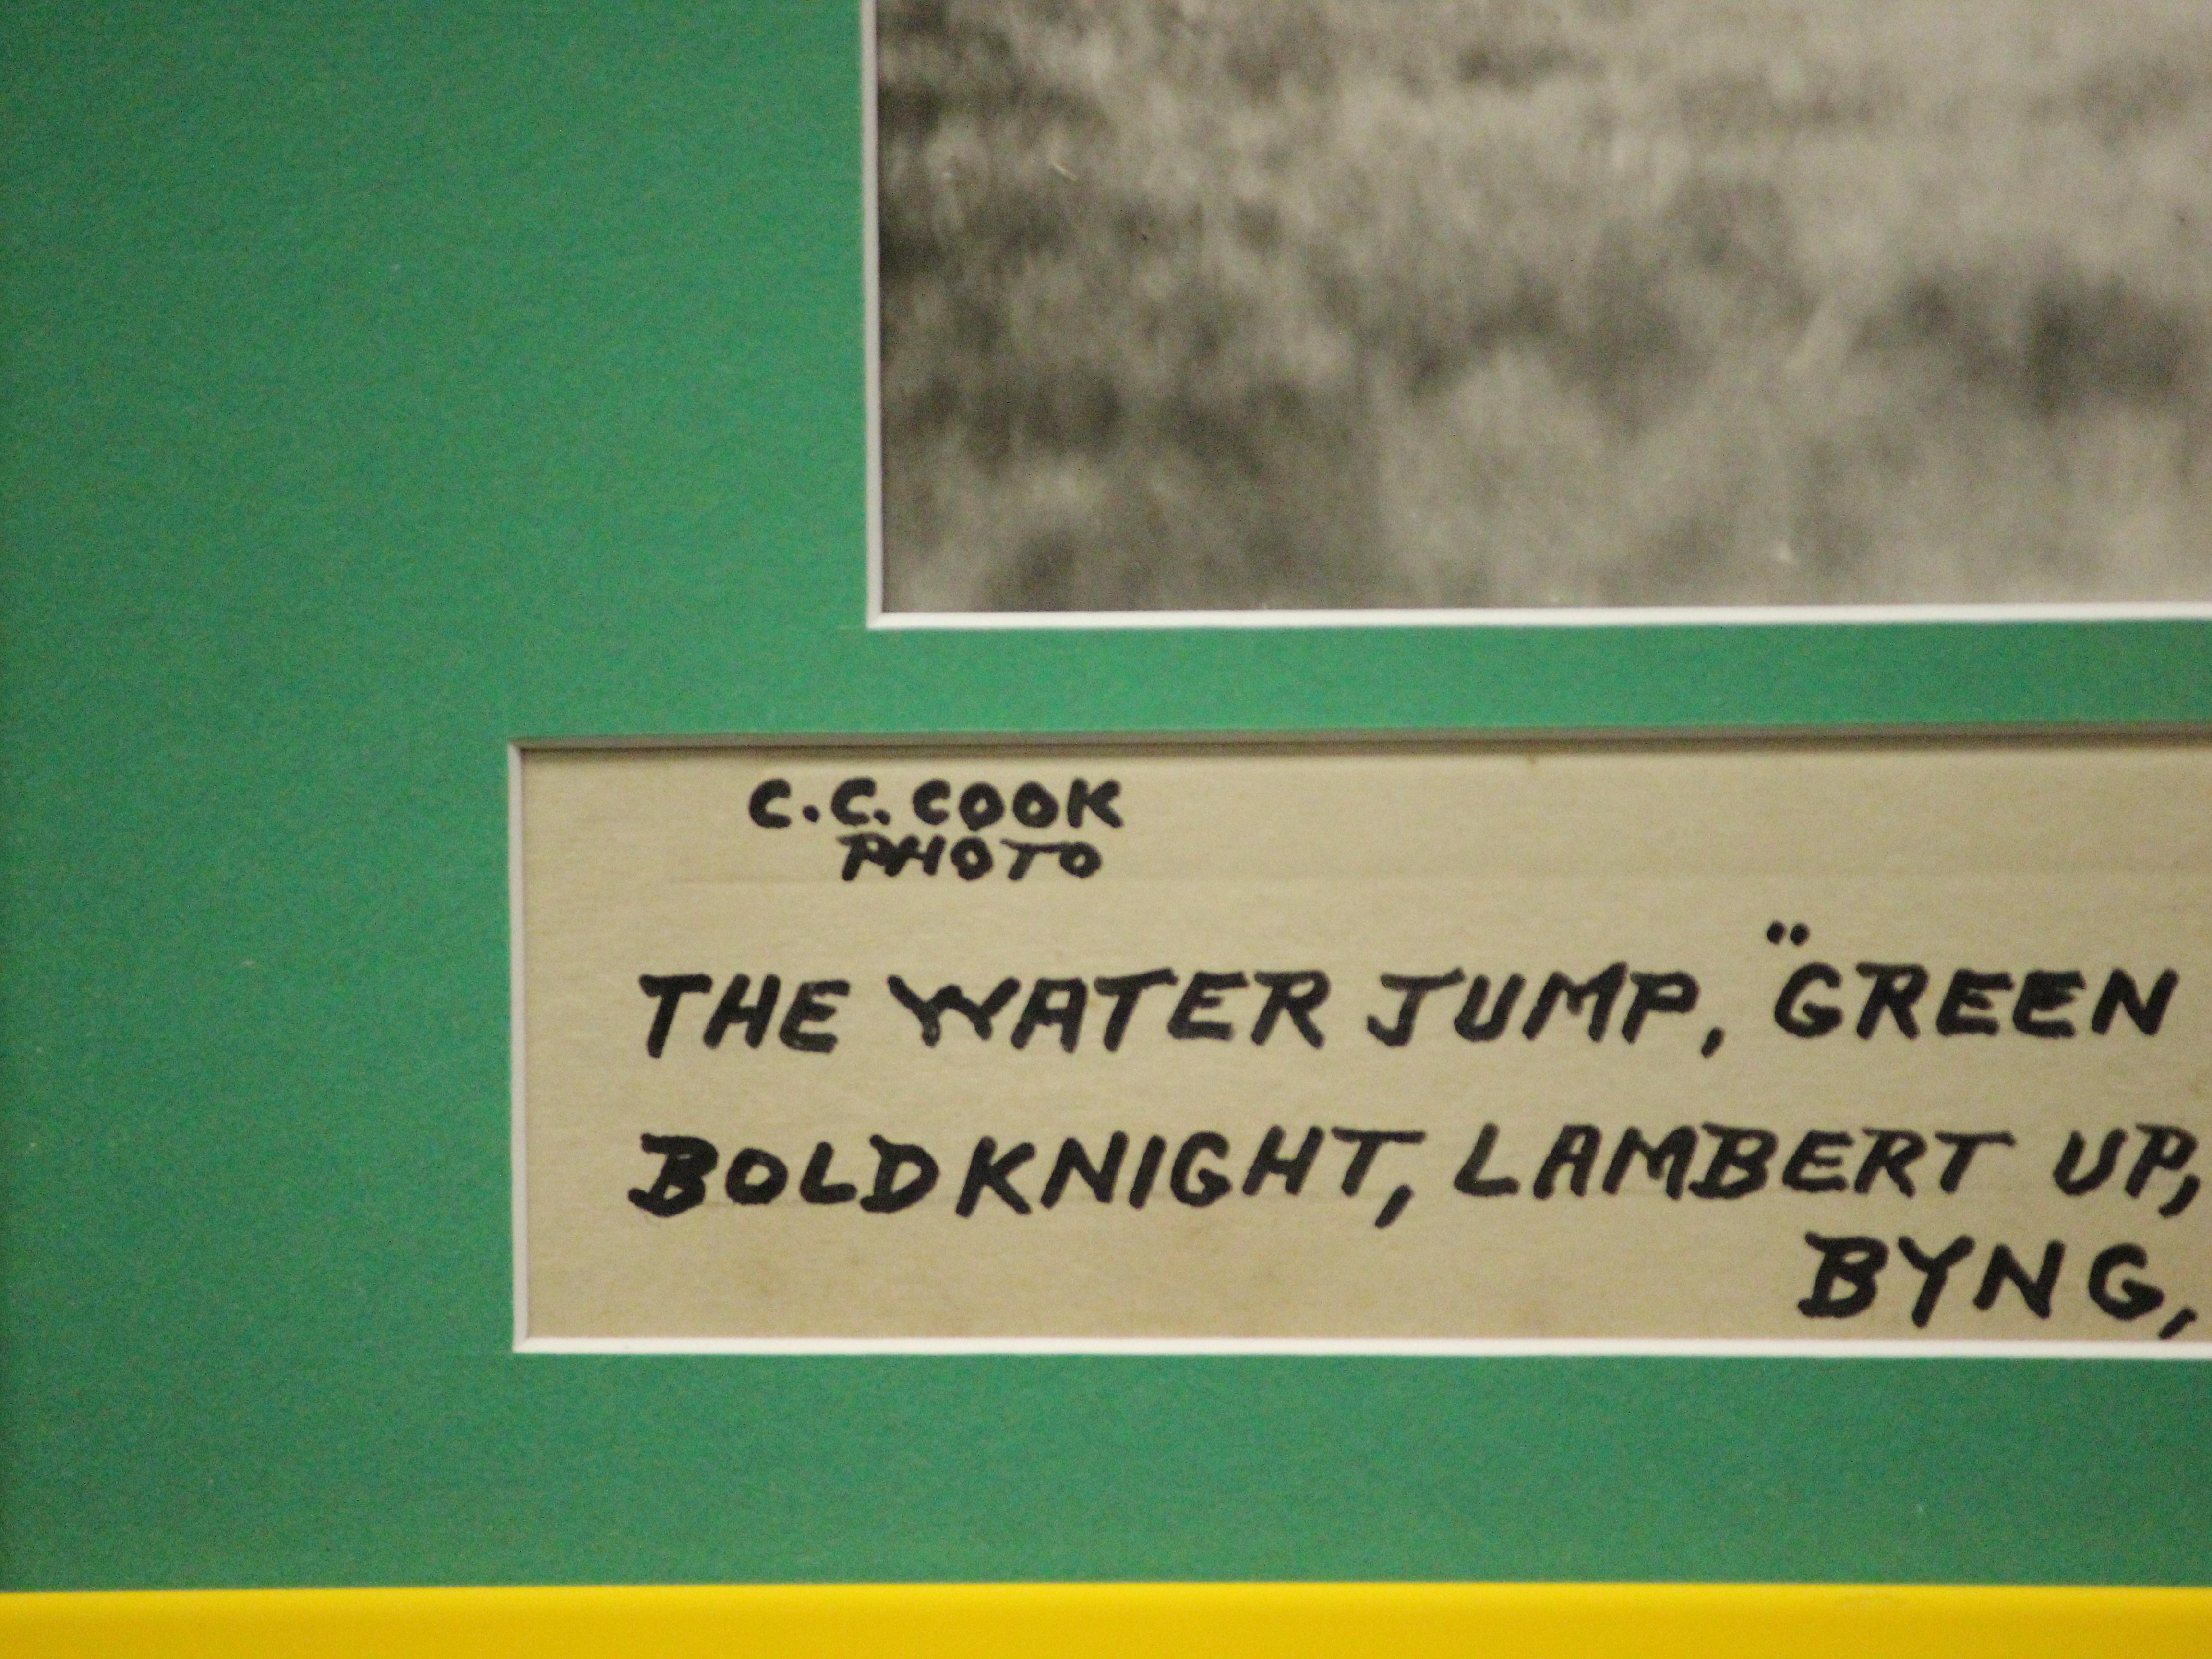 C. C. COOK
PHOTO
THE WATER JUMP, "GREEN
BOLD KNIGHT, LAMBERT UP,
BYNG,